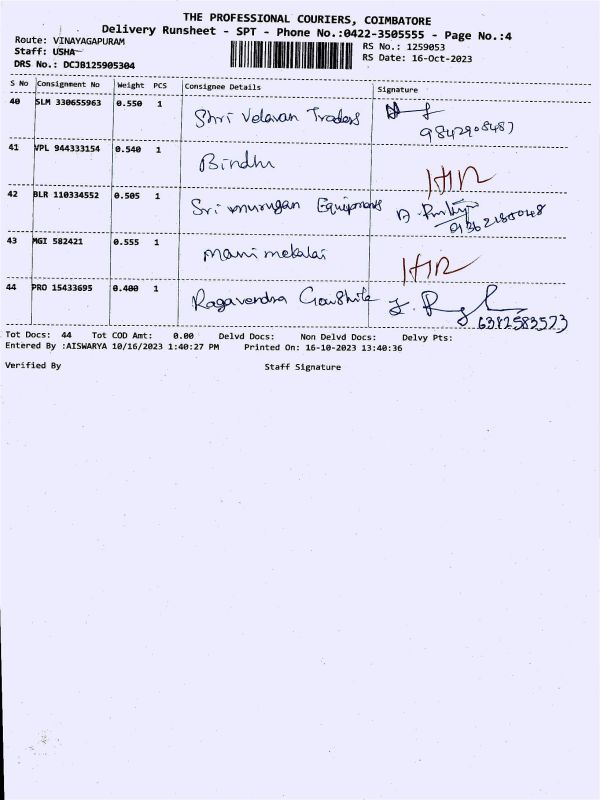 THE PROFESSIONAL COURIERS, COIMBATORE
Delivery Runsheet - SPT - Phone No.:0422-3505555 - Page No.:4
Route: VINAYAGAPURAM
RS No.: 1259053
Staff: USHA
RS Date: 16-Oct-2023
DRS No.: DCJB125905304
S No Consignment No Weight PCS Consignee Details Signature
40 SLM 330655963 0.550 1 Shri Velavan Traders
9842908487
41 VPL 944333154 0.540 1 Bindhu
42 BLR 110334552 0.505 1 Sri murugan Equipments
43 MGI 582421 0.555 1 manimekalai
44 PRO 15433695 0.400 1 Ragavendra
6382583573
Tot Docs: 44 Tot COD Amt: 0.00 Delvd Docs: Non Delvd Docs: Delvy Pts:
Entered By :AISWARYA 10/16/2023 1:40:27 PM Printed On: 16-10-2023 13:40:36
Verified By Staff Signature